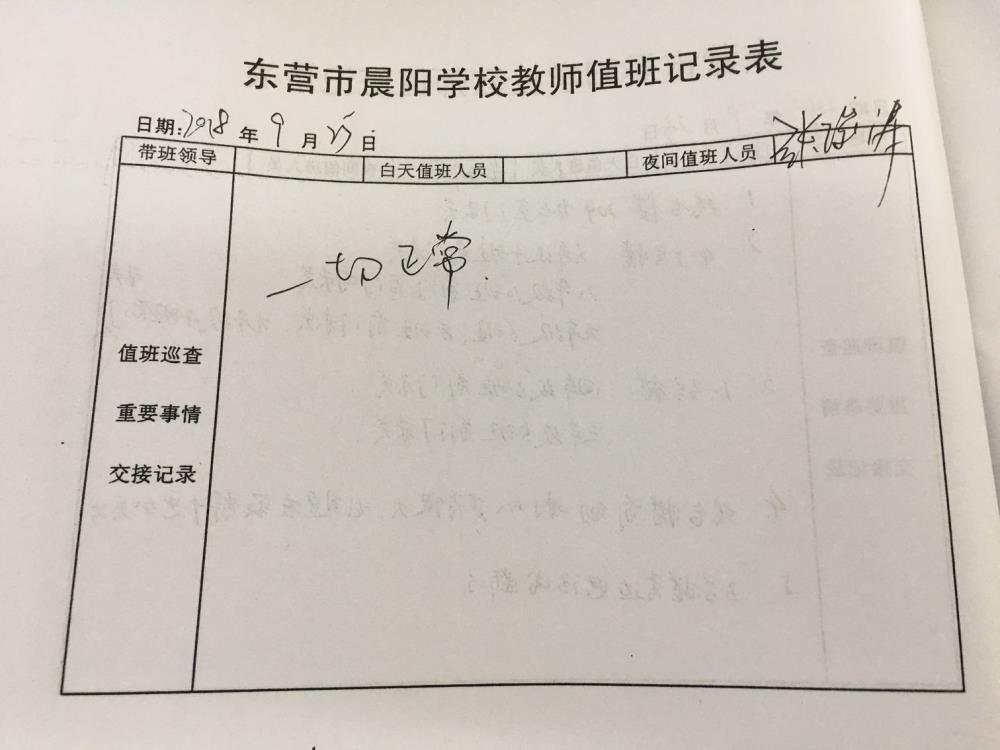 东营市晨阳学校教师值班记录表
日期:2018年9月25日
带班领导 白天值班人员 夜间值班人员
一切正常.
值班巡查
重要事情
交接记录